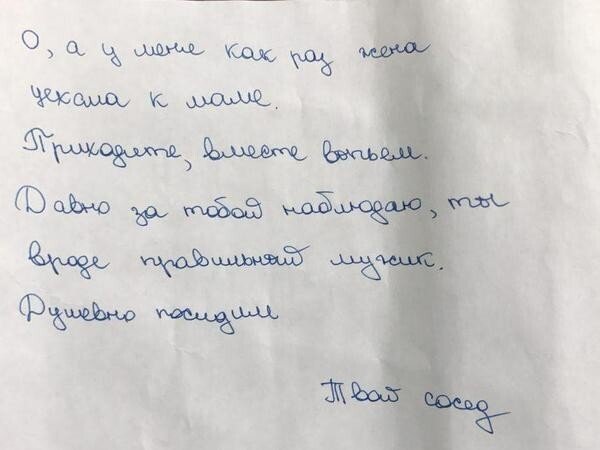 О, а у меня как раз жена
уехала к маме.
Приходите, вместе выпьем.
Давно за тобой наблюдаю, ты
вроде правильный мужик.
Душевно посидим
Твой сосед